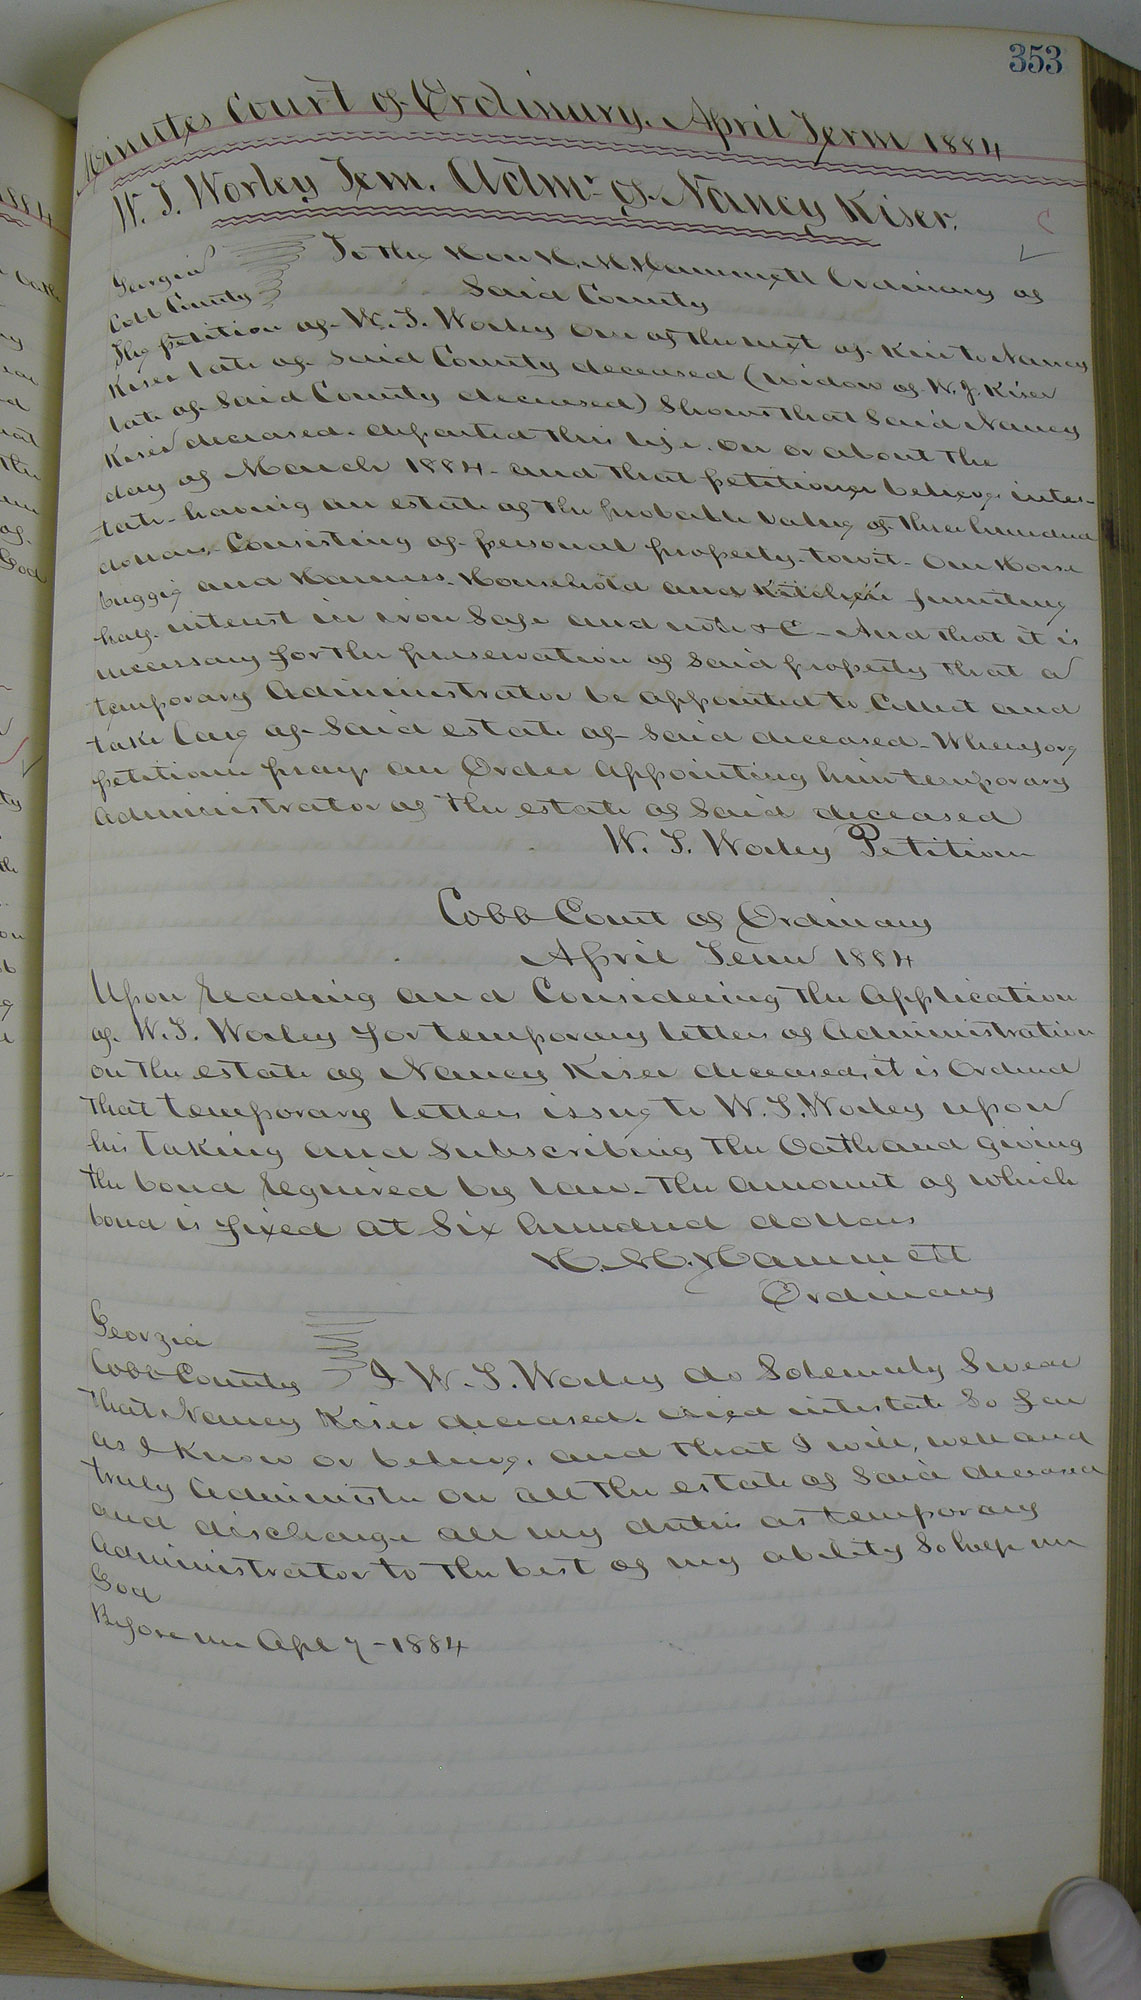 353
Minutes Court of Ordinary. April Term 1884
W. J. Worley Tem. Admr. of Nancy Kiser.
Georgia
Cobb County
To the Hon H. M. Hammett Ordinary of
Said County
The petition of W. J. Worley one of the next of Kin to Nancy
Kiser late of said County deceased (widow of W. J. Kiser
late of Said County deceased) Shows that Said Nancy
Kiser deceased. departed this life. on or about the
day of March 1884 - and that petitioner believes intes-
tate - having an estate of the probable value of three hundred
dollars - Consisting of personal property - towit - One Horse
buggy and Harness - Household and Kitchen furniture
half interest in iron Safe and note &C - And that it is
necessary for the preservation of said property that a
temporary Administrator be appointed to Collect and
take Care of Said estate of said deceased - Wherefore
petitioner prays an Order Appointing him temporary
Administrator of the estate of Said deceased
W. J. Worley Petition
Cobb Court of Ordinary
April Term 1884
Upon reading and Considering the Application
of W. J. Worley for temporary letters of Administration
on the estate of Nancy Kiser deceased, it is Ordered
that temporary letters issue to W. J. Worley upon
his taking and Subscribing the Oath and giving
the bond required by law - the Amount of which
bond is fixed at Six hundred dollars
H. M. Hammett
Ordinary
Georgia
Cobb County
I W. J. Worley do Solemnly Swear
that Nancy Kiser deceased. died intestate So far
as I know or believe, and that I will, well and
truly Administer on all the estate of Said deceased
and discharge all my duties as temporary
Administrator to the best of my ability So help me
God
Before me Apl 7 - 1884